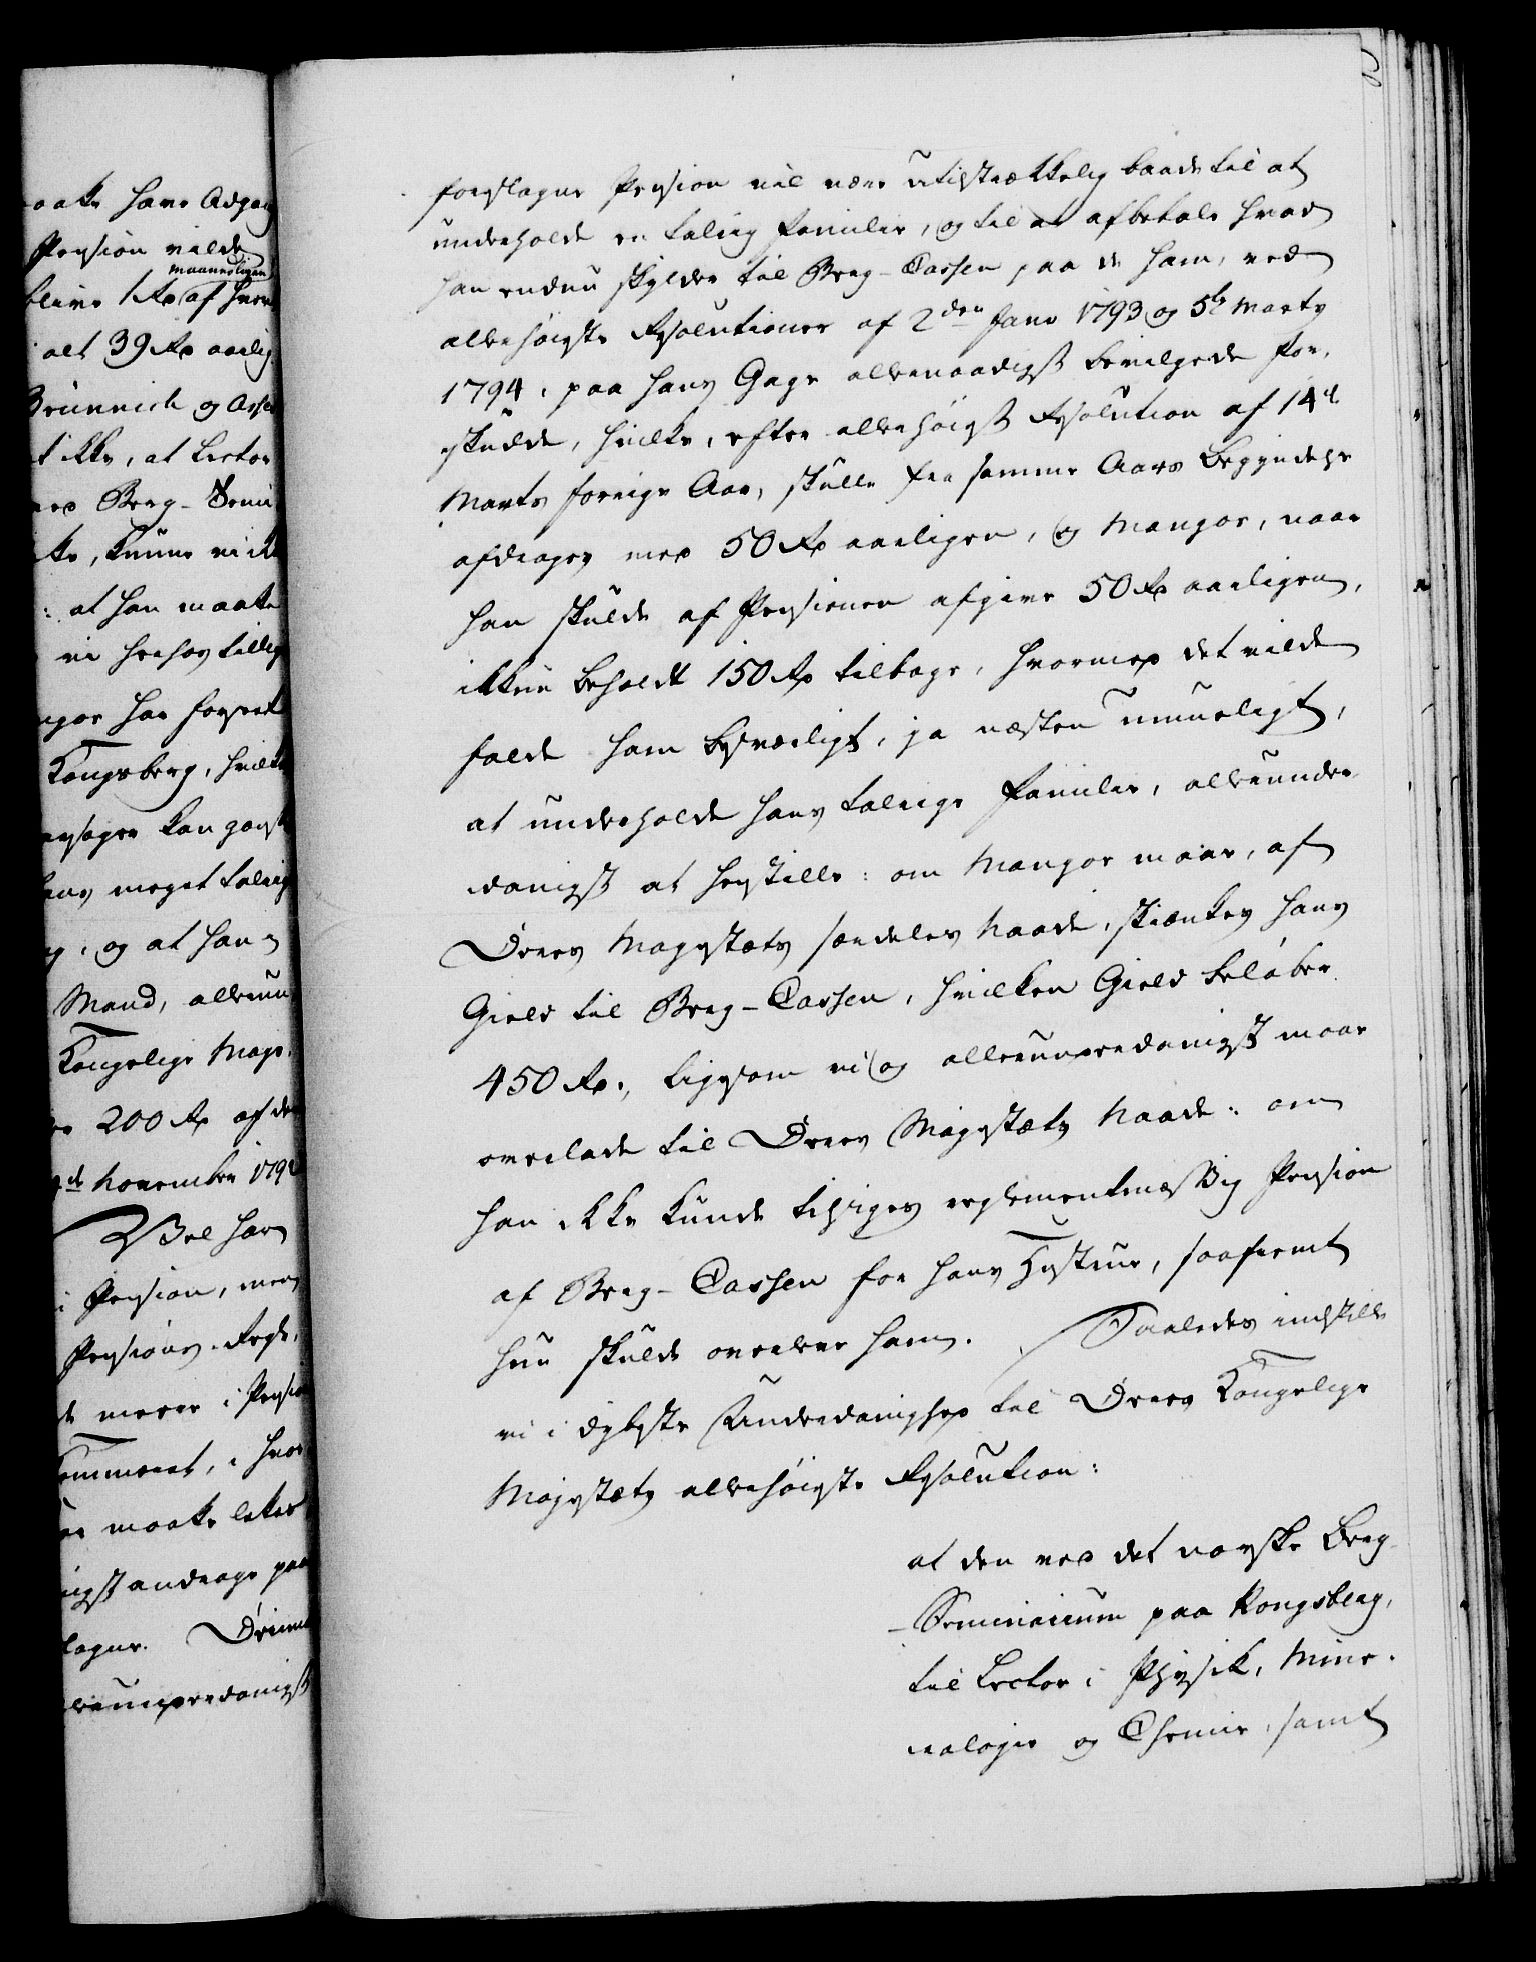 oatte have Adgang
Pension vilde
maanedligen
blive 1 Rd af hver
alt 39 Rd aarlig
Brünnich og Asse
t ikke, at Lector
ved Berg-Semi
ke, kunne vi ikke
: at han maatte
vi herhos tillig
ngor har forrett
Kongsberg, hvilk
ans meget talrig
og at han
Mand, allerun
Kongelige Maje
200 Rd af de
November 179
Vel har
i Pension, men
Pensions-Regle
de mere i Pensi
maatte lates
igst andrage paa
lagne. Denne
lerunderdanigst
foreslagne Pension vil være utilstrækkelig baade til at
underholde en talrig Familie, og til at afbetale hvad
han endnu skylder til Berg-Cassen paa de ham, ved
allerhøieste Resolutioner af 2den Janv 1793 og 5te Marts
1794, paa hans Gage allernaadigst bevilgede For,
skudde, hvilke, efter allerhøiest Resolution af 14de
Marts forrige Aar, skulle fra samme Aars Begyndelse
afdrages med 50 Rd aarligen, og Mangor, naar
han skulde af Pensionen afgive 50 Rd aarligen,
ikkun beholdt 150 Rd tilbage, hvormed det vilde
falde ham besværligt, ja næsten umueligt,
at underholde hans talrige Familie, allerunder
danigst at henstille: om Mangor maae, af
Deres Majestæts særdeles Naade, skienkes hans
Gield til Berg-Cassen, hvilken Gield beløber
450 Rd., ligesom vi og allerunderdanigst maae
overlade til Deres Majestæts Naade: om
han ikke kunde tilsiges reglementmæssig Pension
af Berg-Cassen for hans Hustrue, saafremt
hun skulde overleve ham. Saaledes indstille
vi i dybeste Underdanighed til Deres Kongelige
Majestæts allerhøieste Resolution:
at den ved det norske Berg-
-Seminarium paa Kongsberg,
til Lector i Physik, Mine-
ralogie og Chemie, samt